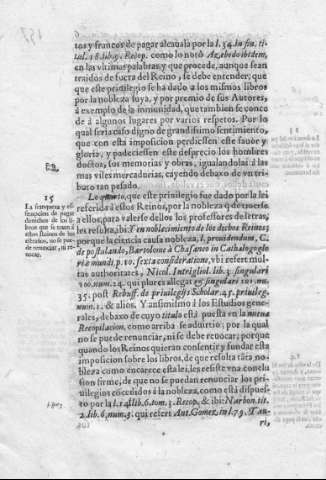 tos y francos de pagar alcauala por la l. 34. in fin. ti-
tul. 18. lib. 9. Recop. como lo notò Azebedo ibidem,
en las vltimas palabras, y que procede, aunque sean
traidos de fuera del Reino, se debe entender, que
que este priuilegio se ha dado a los mismos libros
por la nobleza suya, y por premio de sus Autores,
à exemplo de la inmunidad, que tambien se conce-
de à algunos lugares por varios respetos. Por lo
qual seria caso digno de grandissimo sentimiento,
que con esta imposicion perdiessen este fauor y
gloria, y padeciessen este desprecio los hombres
doctos, sus memorias y obras, igualandolas à las
mas viles mercadurias, cayendo debaxo de vn tri-
buto tan pesado.
15
La franqueza y es-
de pagar
derechos de los li-
bros que se traen à
estos Reinos de las
no se pue-
de renunciar, ni re-
uocar.
Lo quarto, que este priuilegio fue dado por la lei
referida à estos Reinos, por la nobleza q̃ de
a ellos, para valerse dellos los professores de letras,
les resulta, ibi: Y en noblecimiento de los dichos Reinos;
porque la ciencia causa nobleza, l. prouidendum, C.
de postulando, Bartolome à Chasaneo in Cathalogo glo-
riæ mundi, p. 10. sexta consideratione, vbi refert mul-
tas authoritates, Nicol. Intrigliol. lib. 3. singulari
100. num. 24. qui plures allegat singulari 101. nu.
35. post Rebuff. de priuilegijs Scholar. 45. priuileg.
num. 1. & alios. Y ansimismo à los Estudios gene-
rales, debaxo de cuyo titulo està puesta en la nueua
Recopilacion, como arriba se aduirtio; por la qual
no se puede renunciar, ni se debe reuocar; porque
quando los Reinos quieran consentir y fundar esta
imposicion sobre los libros, de que resulta tãta no-
bleza como encarece esta lei, les resiste vna conclu-
sion firme, de que no se puedan renunciar los pri-
uilegios concedidos à la nobleza, como està dispues-
to por la l. 14. lib. 6. tom. 3. Recop. & ibi: Narbon. tit.
2. lib. 6. num. 3. qui refert Ant. Gomez. in l. 79. Tau-
ri,